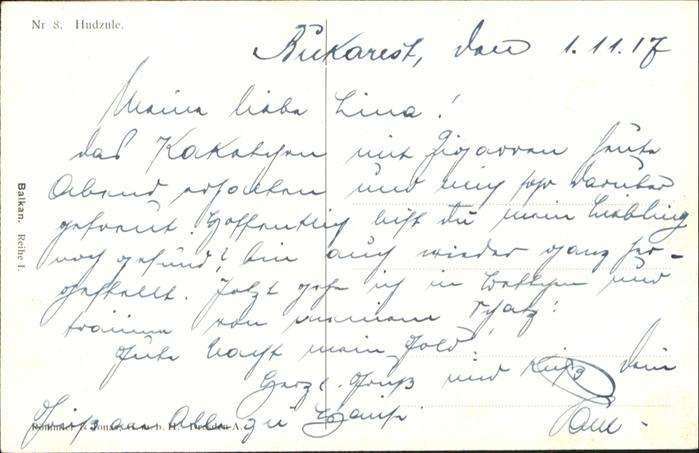 Nr 8. Hudzule.
Bukarest, den 1.11.17
Meine liebe Lina!
das Paketchen mit Zigarren heute
Abend erhalten und mich sehr darüber
gefreut. Hoffentlich bist du mein Liebling
noch gesund, bin auch wieder ganz her-
gestellt. Jetzt gehe ich in Bettchen und
träume von meinem Schatz!
Gute Nacht mein Gold!
Herzl. Gruß und Kuß Dein
Grüße an Alle zu Hause
Balkan. Reihe I.
Dresden-A.